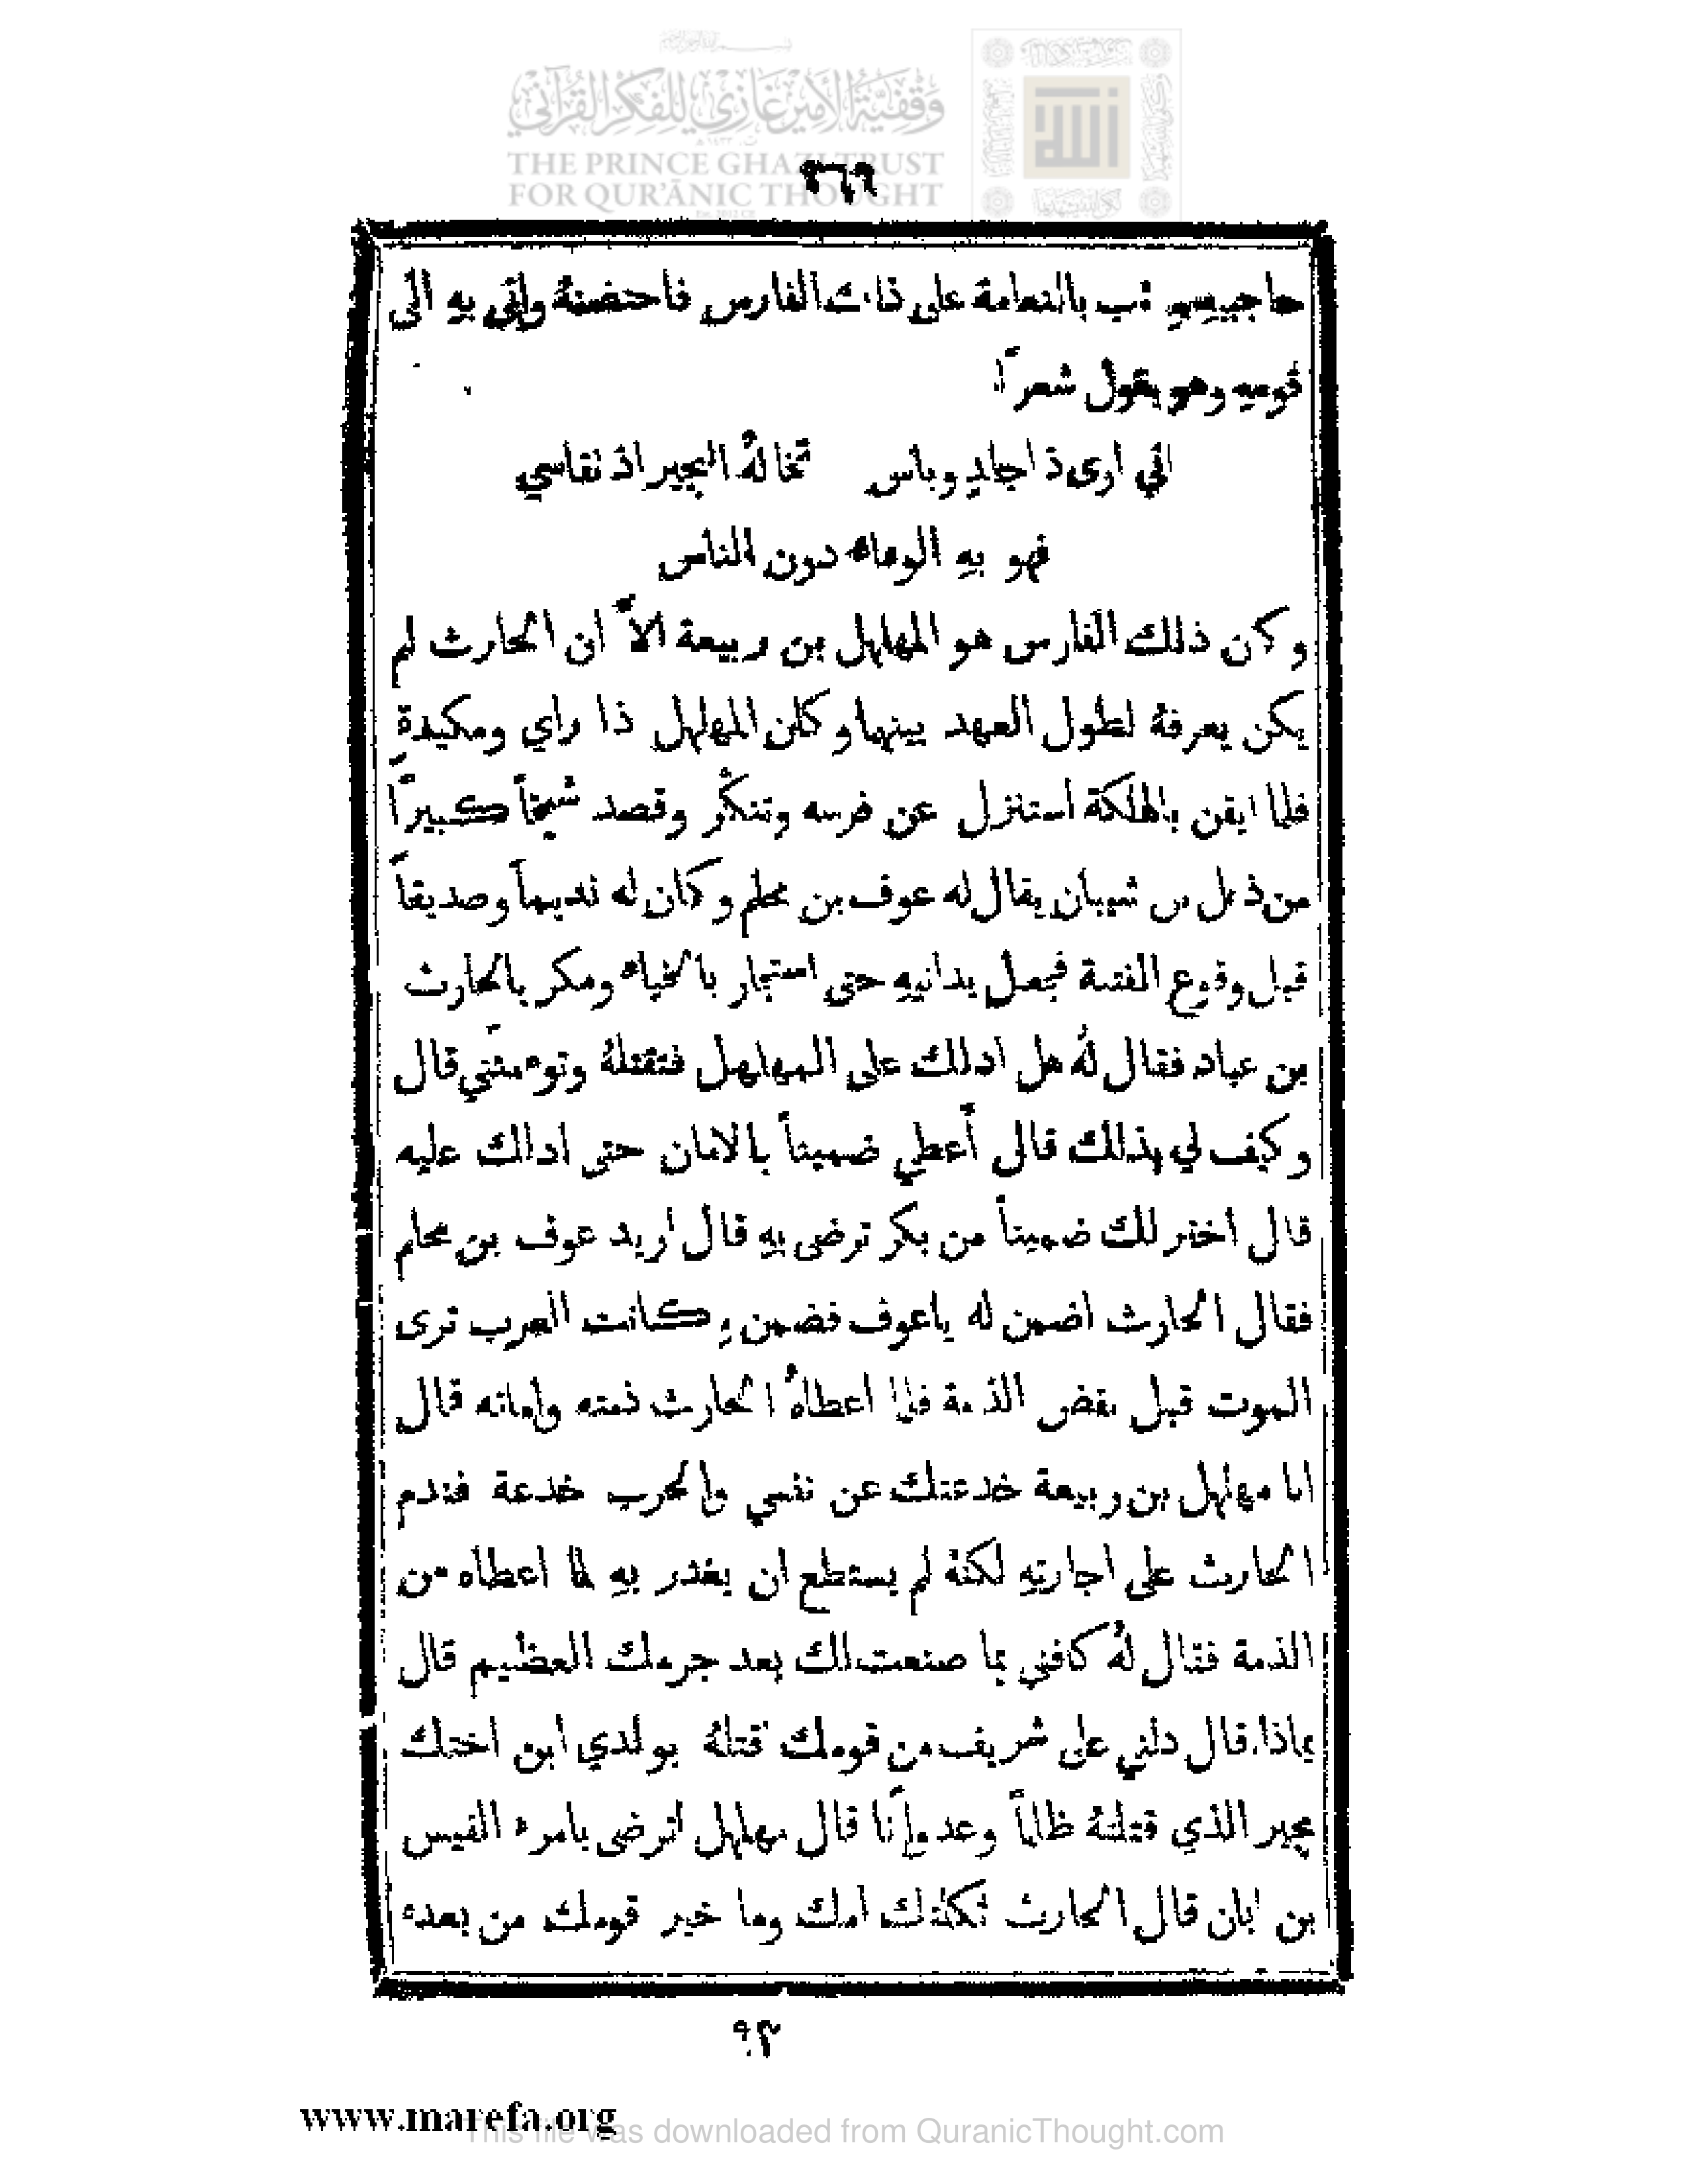 وقفية الأمير غازي للفكر القرآني
THE PRINCE GHAZI TRUST
FOR QUR'ĀNIC THOUGHT
٣٦٩
حاجبيه بالنعامة على ذلك الفارس فاحتضنهُ واتى بهِ الى
قومهِ وهو يقول شعراً
اني ارى ذا جلدٍ وباس تخالهُ البجير اذ نقاسي
فهو بهِ الوفاء دون الناس
وكان ذلك الفارس هو المهلهل بن ربيعة الاَّ ان الحارث لم
يكن يعرفهُ لطول العهد بينهما وكان المهلهل ذا راي ومكيدةٍ
فلما ايقن بالهلكة استنزل عن فرسه وتنكَّر وقصد شيخاً كبيراً
من ذهل بن شيبان يقال له عوف بن محلم وكان له نديماً وصديقاً
قبل وقوع الفتنة فجعل يدانيهِ حتى استجار بالخباء ومكر بالحارث
بن عباد فقال لهُ هل ادلك على المهلهل فتقتلهُ وتوءمنَّني قال
وكيف لي بذلك قال أعطي ضميناً بالامان حتى ادلك عليه
قال اختر لك ضميناً من بكر ترضى بهِ قال اريد عوف بن محلم
فقال الحارث اضمن له ياعوف فضمن وكانت العرب ترى
الموت قبل نقض الذمة فلما اعطاهُ الحارث ذمته وامانه قال
انا مهلهل بن ربيعة خدعتك عن نفسي والحرب خدعة فندم
الحارث على اجارتهِ لكنهُ لم يستطع ان يغدر بهِ لما اعطاه من
الذمة فقال لهُ كافني بما صنعت لك بعد جرمك العظيم قال
بماذا قال دلني على شريف من قومك اقتلهُ بولدي ابن اختك
بجير الذي قتلتهُ ظلماً وعدواناً قال مهلهل اترضى بامرء القيس
بن ابان قال الحارث ثكلتك امك وما خير قومك من بعده
٩٢
www.marefa.org
This file was downloaded from QuranicThought.com